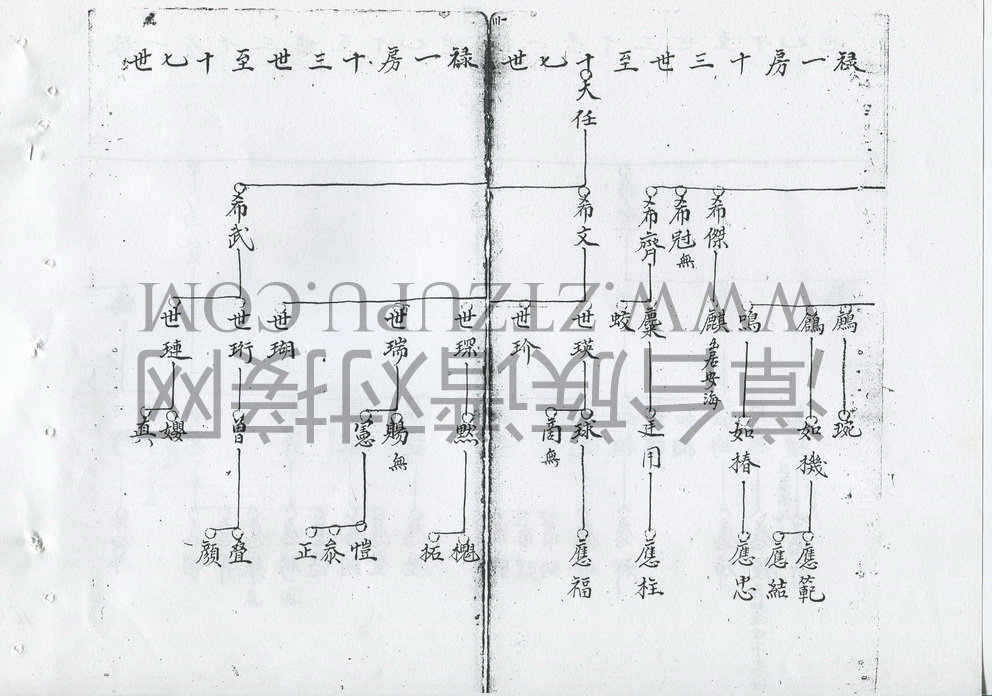 禄一房十三世至十七世
禄一房十三世至十七世
天任
希傑
希冠無
希齊
希文
希武
鷉
鶬
鳴
麒 名居安海
麋
蛟
世瑛
世玠
世琛
世瑞
世瑚
世珩
世璉
琬
如機
如椿
廷用
球
啇無
黙
賜無
憲
曾
嬰
真
應範
應結
應忠
應柱
應福
槐
拓
愷
叅
正
叠
顔
WWW.ZTZUPU.COM
漳台族谱对接网